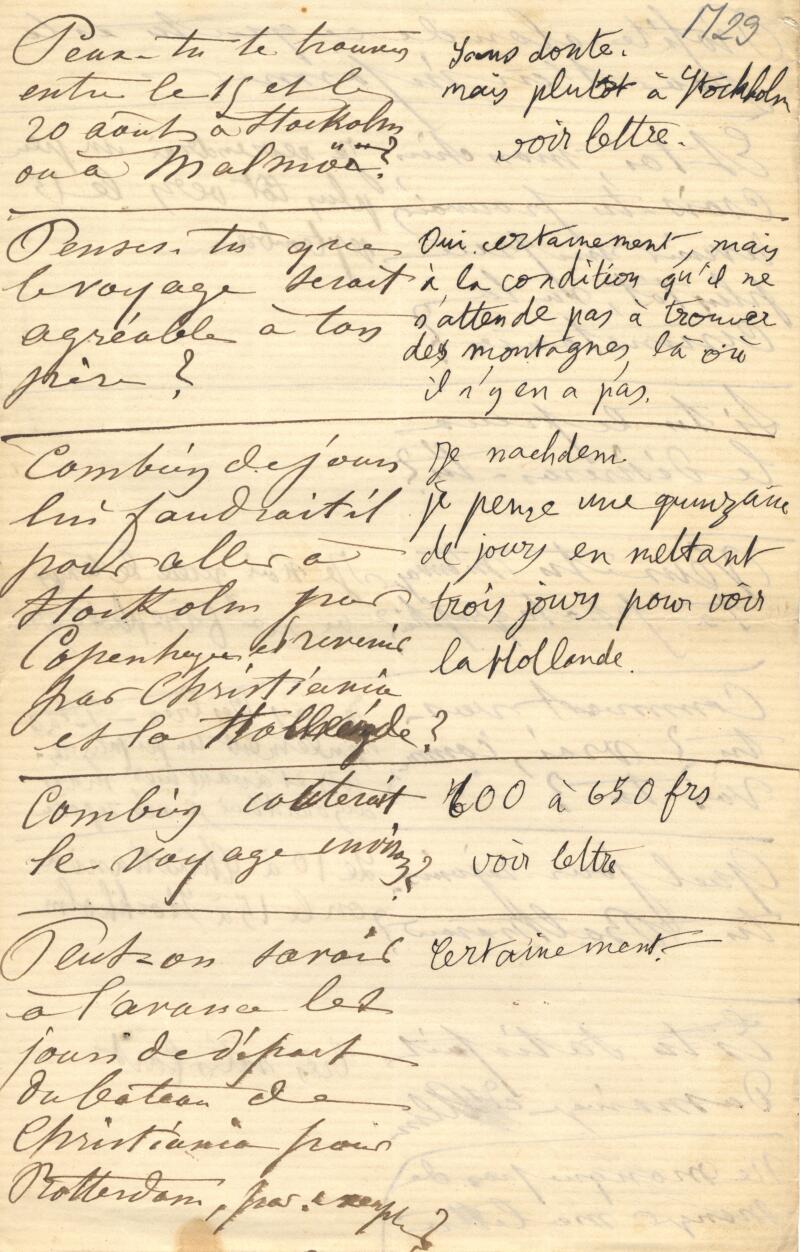 1729
Peux-tu te trouver
entre le 15 et le
20 août à Stockolm
ou à Malmöe?
Sans doute.
mais plutot à Stockholm
voir lettre.
Penses-tu que
le voyage serait
agréable à ton
père ?
Oui certainement, mais
à la condition qu'il ne
s'attende pas à trouver
des montagnes là où
il n'y en a pas.
Combien de jours
lui faudrait il
pour aller à
Stockolm par
Copenhague et revenir
par Christiania
et la Hollande ?
je pense une quinzaine
de jours en mettant
trois jours pour voir
la Hollande.
Combien coûterait
le voyage environ ?
600 à 650 frs
voir lettre
Peut-on savoir
à l'avance les
jours de départ
du bateau de
Christiania pour
Rotterdam, par exemple ?
Certainement.